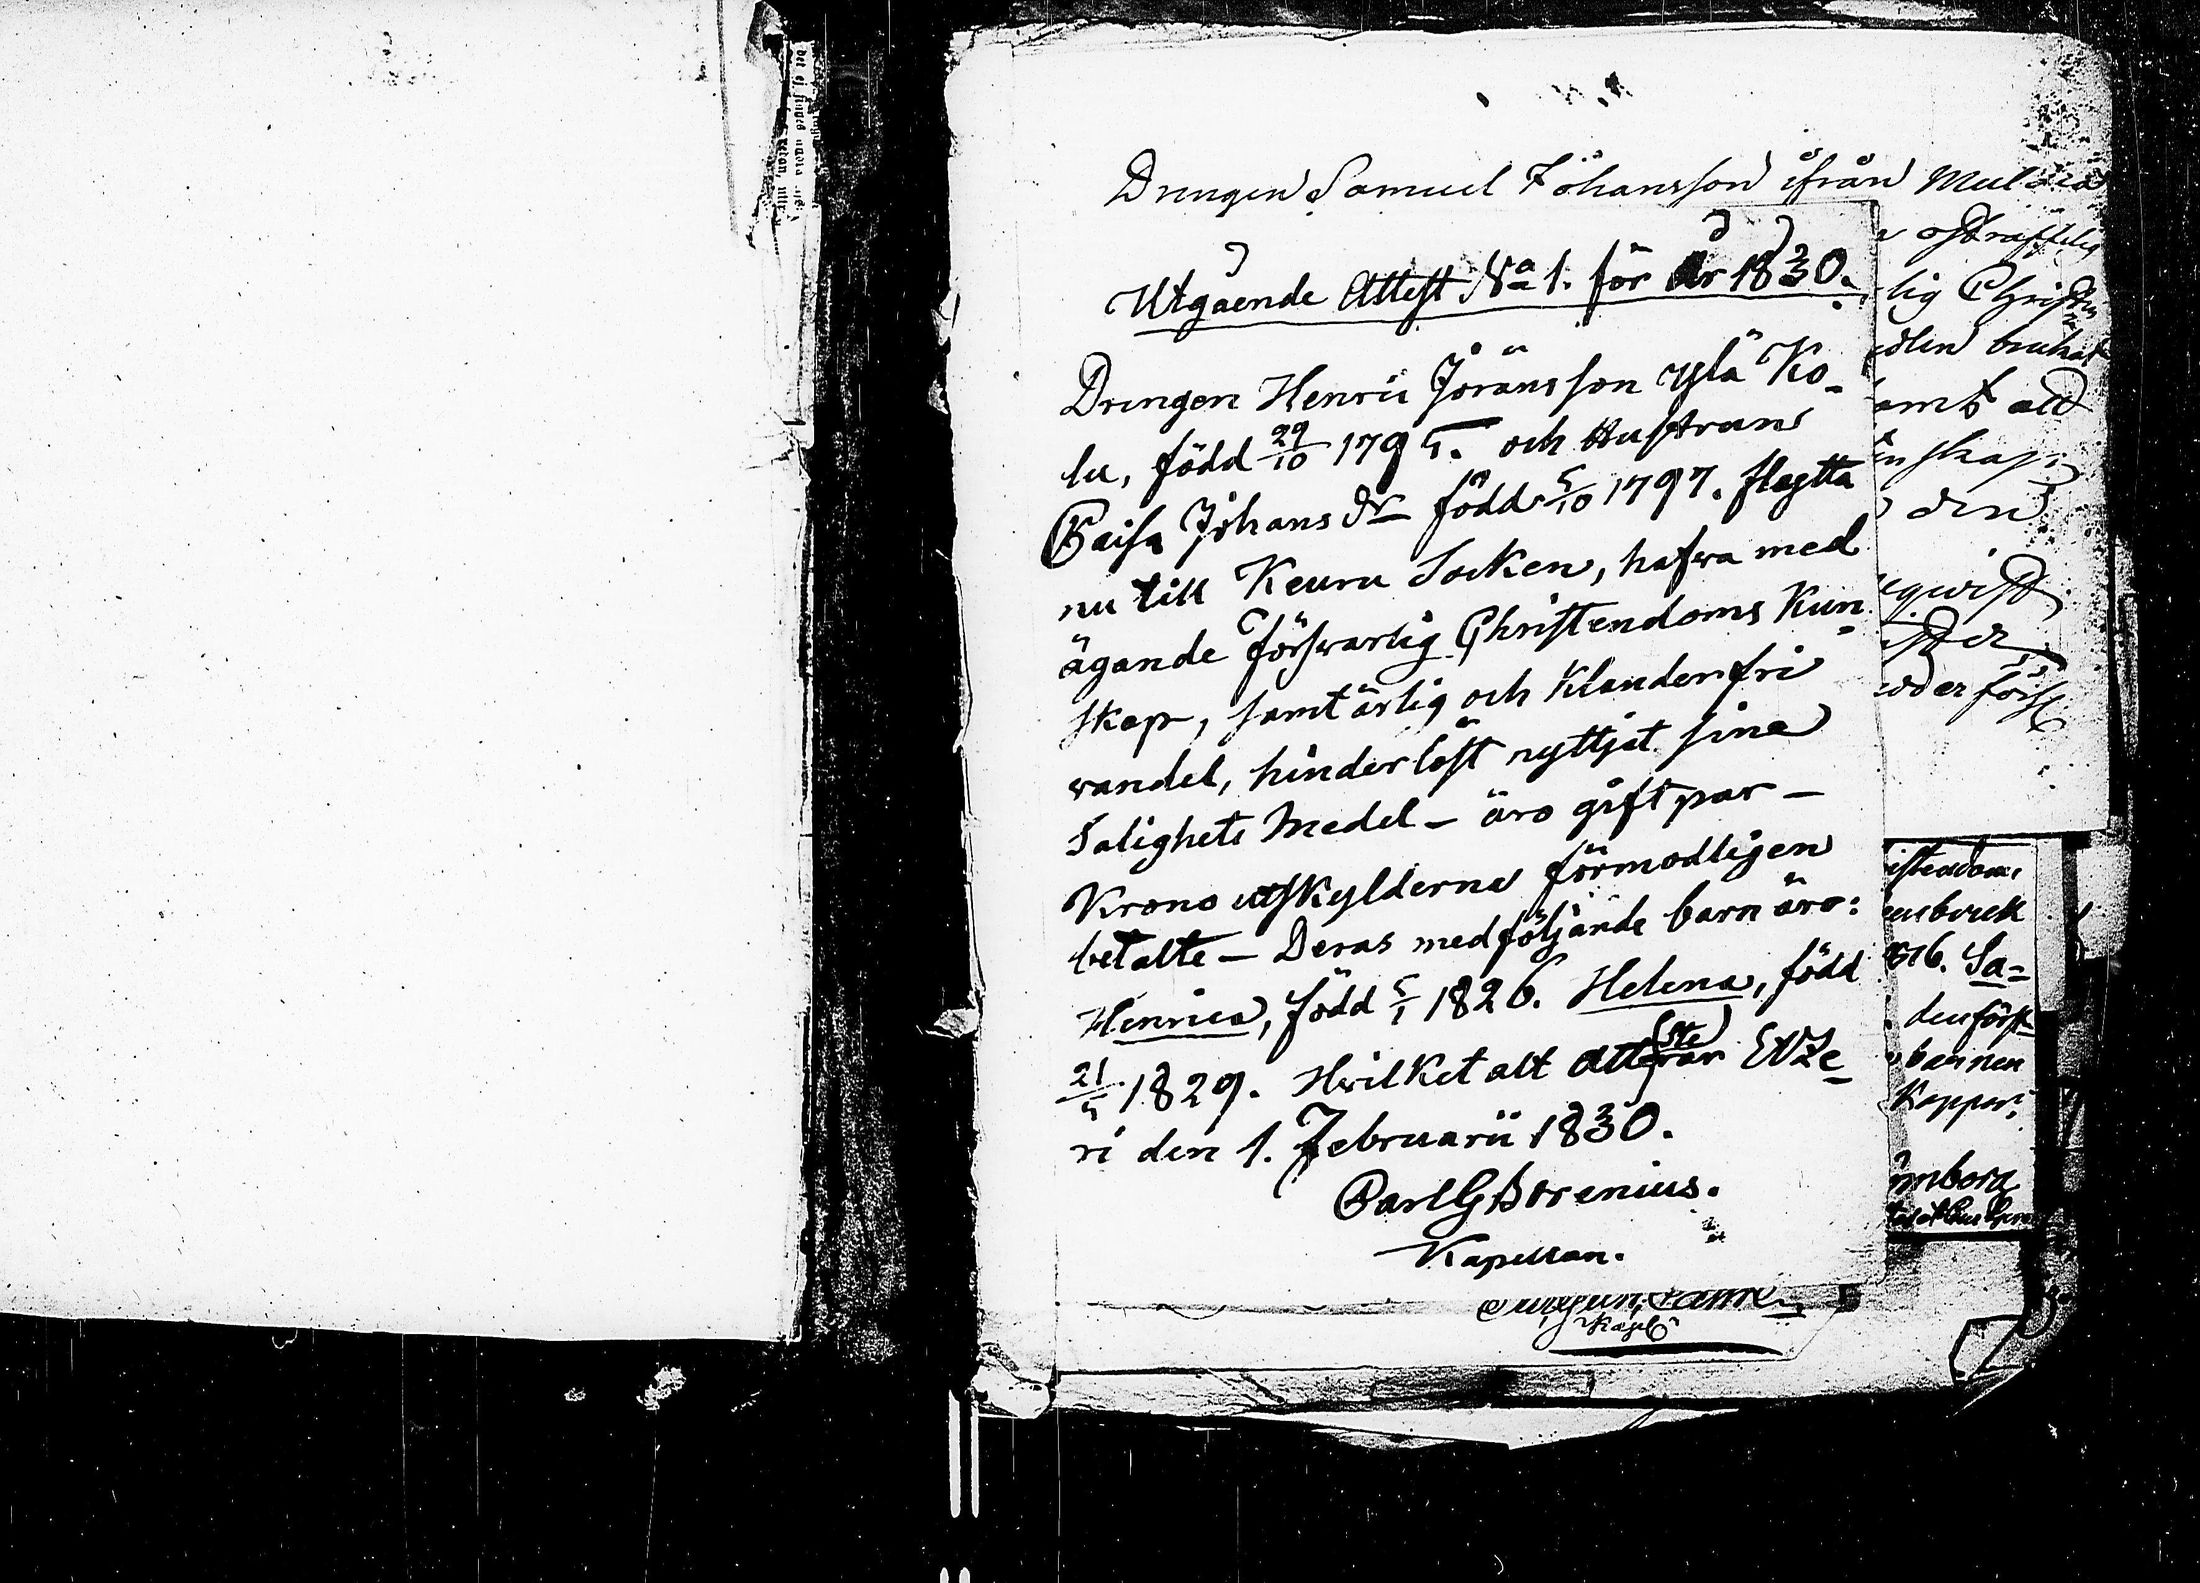 Drengen Samuel Johansson ifrån Mul
Utgående Attest No 1. för År 1830.
Drengen Henric Jöransson ylä Ko-
lu, född 29/10 1795. och Hustrun
Caisa Johans dr född 5/10 1797. flytta
nu till Keuru Socken, hafva med
ägande försvarlig Christendoms Kun
skap, samt ärlig och Klanderfri
vandel, hinderlöst nyttjat sine
Salighets Medel - äro gift par -
Krono utskylderne förmodligen
betalte - Deras medföljande barn äro:
Henrica, född 5/1 1826. Helena, född
21/5 1829. Hvilket alt Atte(ste)rar Etze
ri den 1. Februarii 1830.
Carl G Borenius.
Kapellan.
Kapel
ostraffelig
lig Christen
dlen brukat
amt all
skap
den
qvist
förs
istendoms
616. Sa=
den först
bannen
Kappar
mborg